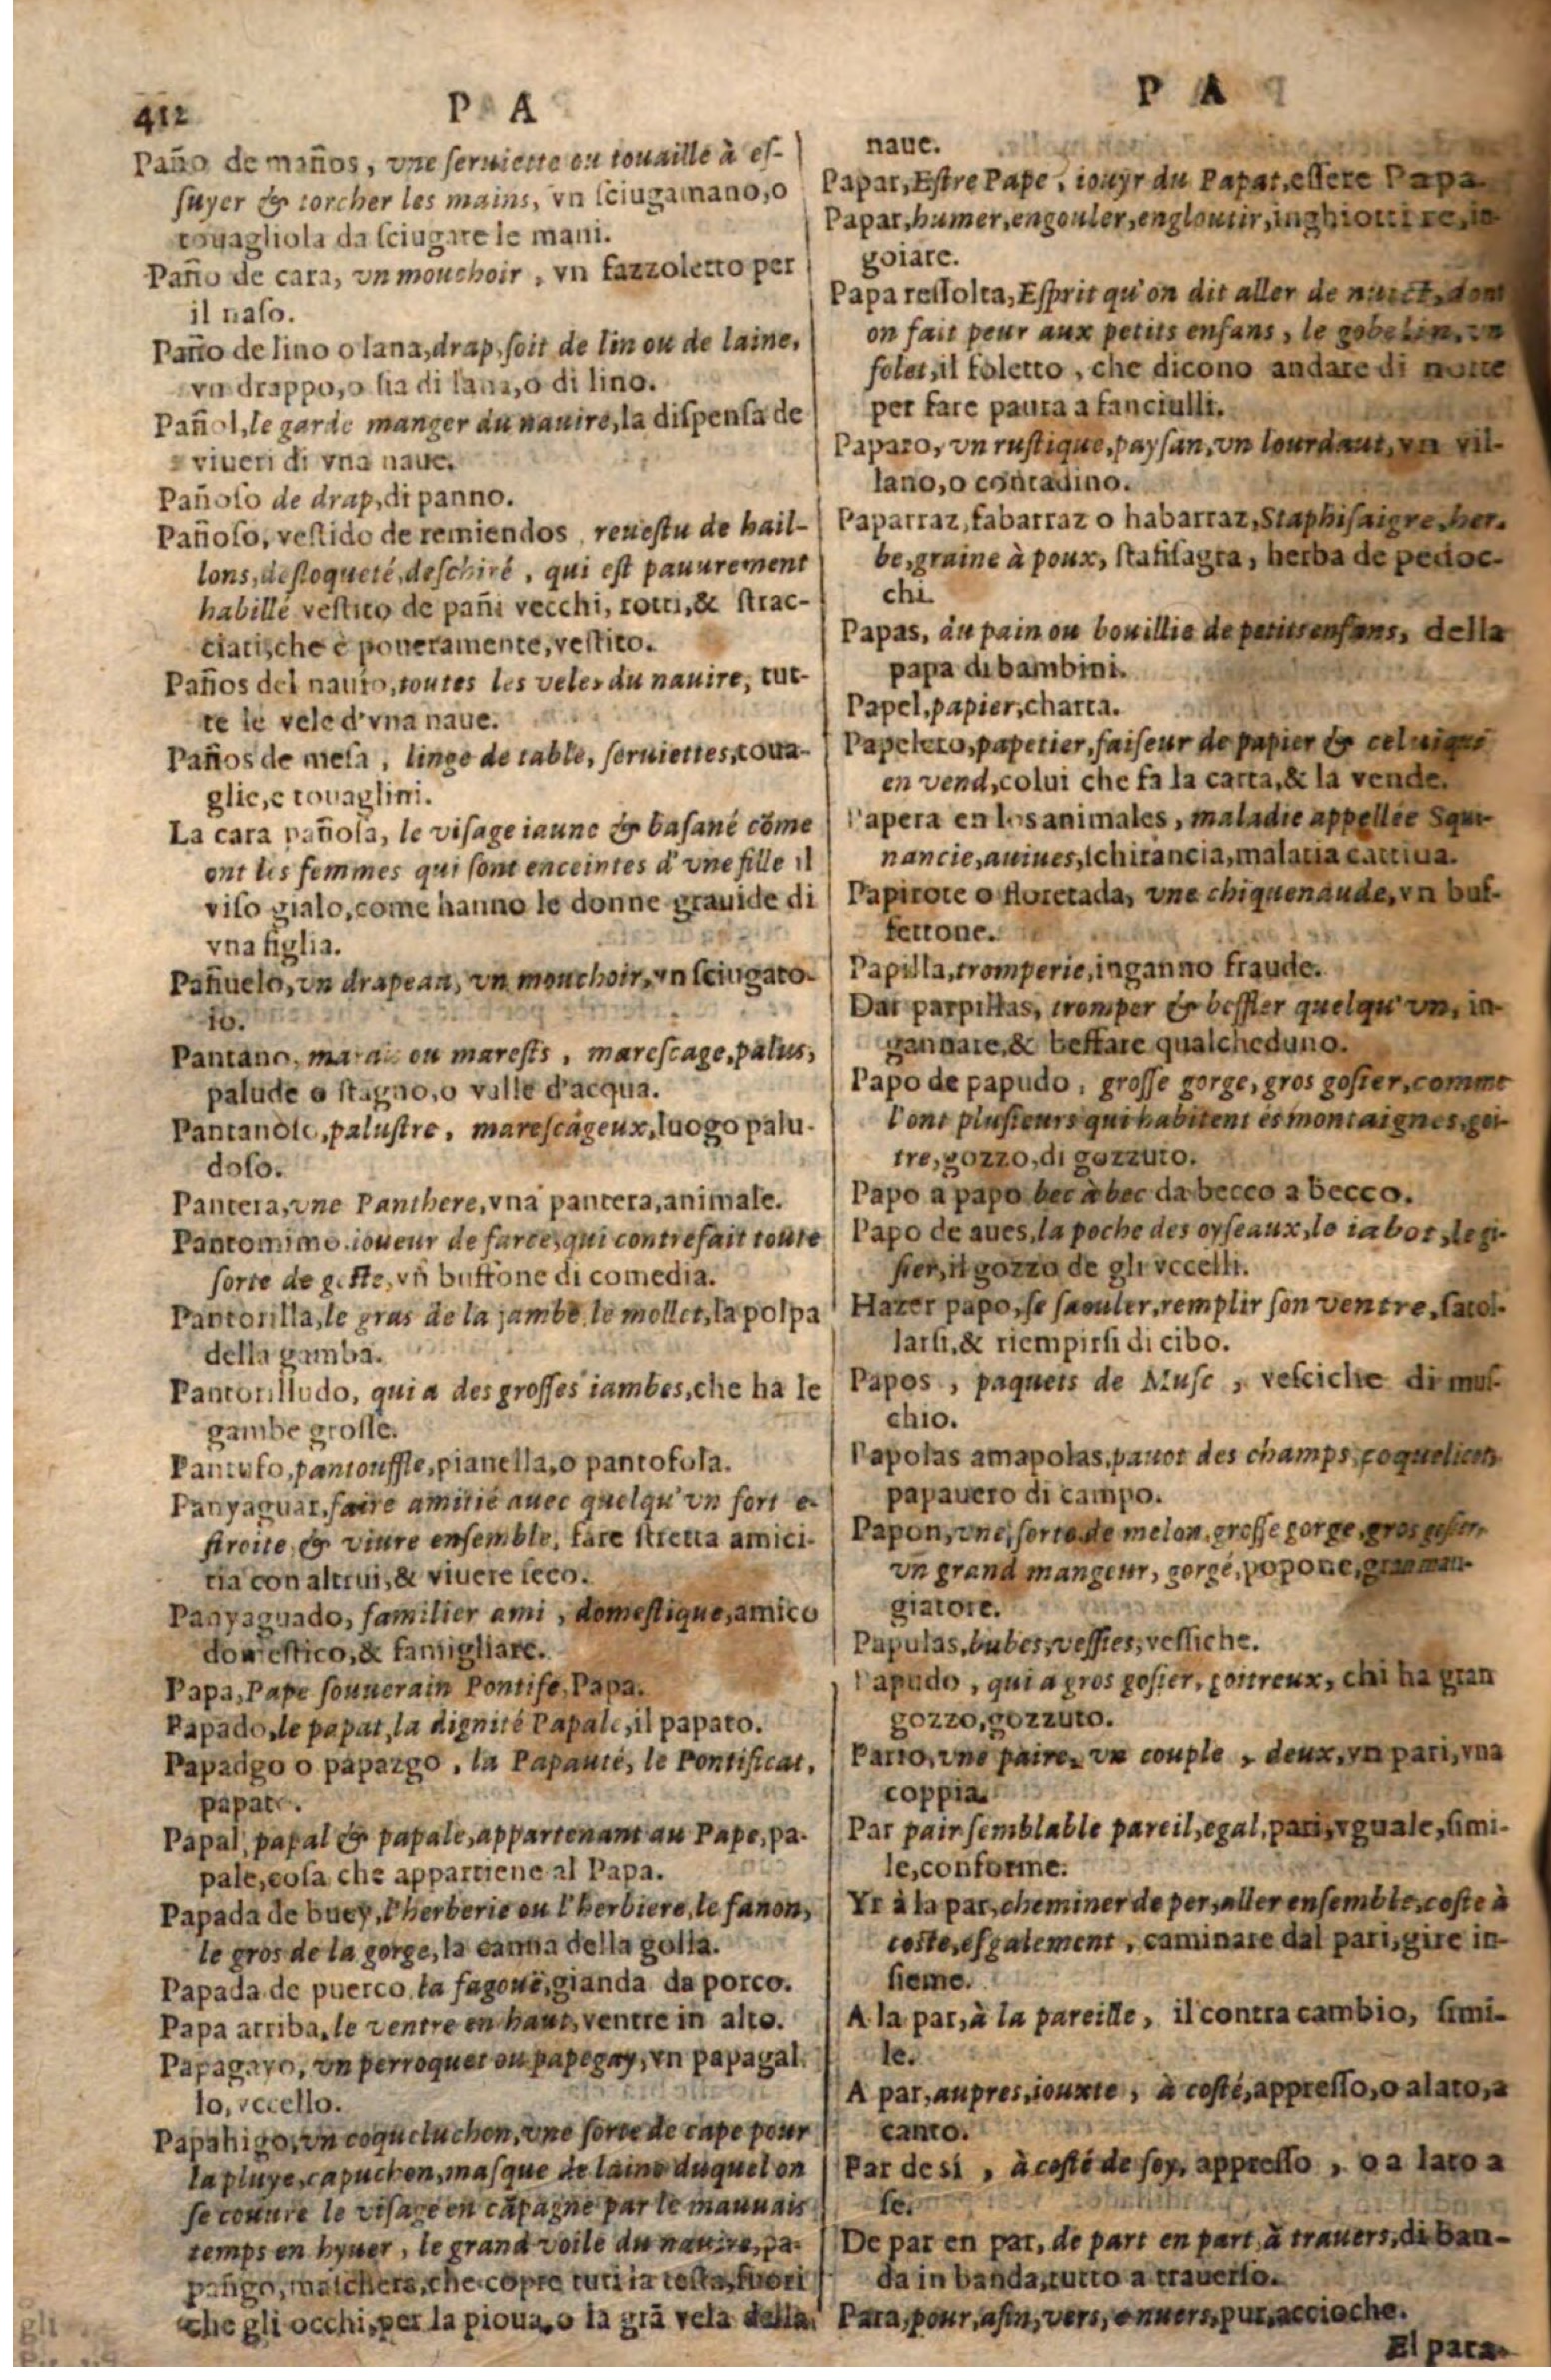 412 P A
Paño de maños, vne ſeruiette ou touaille à eſ-
ſuyer & torcher les mains, vn ſciugamano, o
touagliola da ſciugare le mani.
Paño de cara, vn mouchoir, vn fazzoletto per
il naſo.
Paño de lino o lana, drap, ſoit de lin ou de laine,
vn drappo, o ſia di lana, o di lino.
Pañol, le garde manger du nauire, la diſpenſa de
viueri di vna naue.
Pañoſo de drap, di panno.
Pañoſo, veſtido de remiendos, reueſtu de hail-
lons, deſloqueté, deſchiré, qui eſt pauurement
habillé veſtito de pañi vecchi, rotti, & ſtrac-
ciati, che è poueramente, veſtito.
Paños del nauio, toutes les veles du nauire, tut-
te le vele d'vna naue.
Paños de meſa, linge de table, ſeruiettes, toua-
glie, e touaglini.
La cara pañoſa, le viſage iaune & baſané cõme
ont les femmes qui ſont enceintes d'vne fille il
viſo gialo, come hanno le donne grauide di
vna figlia.
Pañuelo, vn drapeau, vn mouchoir, vn ſciugato-
io.
Pantano, marais ou mareſts, mareſcage, palus,
palude o ſtagno, o valle d'acqua.
Pantanoſo, paluſtre, mareſcageux, luogo palu-
doſo.
Pantera, vne Panthere, vna pantera, animale.
Pantomimo ioueur de farce, qui contrefait toute
ſorte de geſte, vn buffone di comedia.
Pantorilla, le gras de la jambe le mollet, la polpa
della gamba.
Pantorilludo, qui a des groſſes iambes, che ha le
gambe groſſe.
Pantufo, pantouffle, pianella, o pantofola.
Panyaguar, faire amitié auec quelqu'vn fort e-
ſtroite & viure enſemble, fare ſtretta amici-
tia con altrui, & viuere ſeco.
Panyaguado, familier ami, domeſtique, amico
domeſtico, & famigliare.
Papa, Pape ſouuerain Pontife, Papa.
Papado, le papat, la dignité Papale, il papato.
Papadgo o papazgo, la Papauté, le Pontificat,
papato.
Papal, papal & papale, appartenant au Pape, pa-
pale, coſa che appartiene al Papa.
Papada de buey, l'herberie ou l'herbiere, le fanon,
le gros de la gorge, la canna della golla.
Papada de puerco la fagouë, gianda da porco.
Papa arriba, le ventre en haut, ventre in alto.
Papagayo, vn perroquet ou papegay, vn papagal-
lo, vccello.
Papahigo, vn coqueluchon, vne ſorte de cape pour
la pluye, capuchon, maſque de laine duquel on
ſe couure le viſage en cãpagne par le mauuais
temps en hyuer, le grand voile du nauire, pa-
pañgo, maſchera, che copre tuti la teſta, fuori
che gli occhi, per la pioua, o la grã vela della
P A
naue.
Papar, Eſtre Pape, iouyr du Papat, eſſere Papa.
Papar, humer, engouler, engloutir, inghiottire, in-
goiare.
Papa reſſolta, Eſprit qu'on dit aller de nuict, dont
on fait peur aux petits enfans, le gobelin, vn
folet, il foletto, che dicono andare di notte
per fare paura a fanciulli.
Paparo, vn ruſtique, payſan, vn lourdaut, vn vil-
lano, o contadino.
Paparraz, fabarraz o habarraz, Staphiſaigre, her-
be, graine à poux, ſtafiſagra, herba de pedoc-
chi.
Papas, du pain ou bouillie de petits enfans, della
papa di bambini.
Papel, papier, charta.
Papelero, papetier, faiſeur de papier & celui qui
en vend, colui che fa la carta, & la vende.
Papera en los animales, maladie appellée Squi-
nancie, auiues, ſchirancia, malatia cattiua.
Papirote o floretada, vne chiquenaude, vn buf-
fettone.
Papilla, tromperie, inganno fraude.
Dar parpillas, tromper & beffler quelqu'vn, in-
gannare, & beffare qualcheduno.
Papo de papudo, groſſe gorge, gros goſier, comme
l'ont pluſieurs qui habitent es montaignes, goi-
tre, gozzo, di gozzuto.
Papo a papo bec à bec da becco a becco.
Papo de aues, la poche des oyſeaux, le iabot, le gi-
ſier, il gozzo de gli vccelli.
Hazer papo, ſe ſaouler, remplir ſon ventre, ſatol-
larſi, & riempirſi di cibo.
Papos, paquets de Muſc, veſciche di muſ-
chio.
Papolas amapolas, pauot des champs, coquelicoq
papauero di campo.
Papon, vne ſorte de melon, groſſe gorge, gros goſier,
vn grand mangeur, gorgé, popone, gran man-
giatore.
Papulas, bubes, veſſies, veſſiche.
Papudo, qui a gros goſier, goitreux, chi ha gran
gozzo, gozzuto.
Parro, vne paire, vn couple, deux, vn pari, vna
coppia.
Par pair ſemblable pareil, egal, pari, vguale, ſimi-
le, conforme.
Yr à la par, cheminer de per, aller enſemble, coſte à
coſte, eſgalement, caminare dal pari, gire in-
ſieme.
A la par, à la pareille, il contra cambio, ſimi-
le.
A par, aupres, iouxte, à coſté, appreſſo, o alato, a
canto.
Par de si, à coſté de ſoy, appreſſo, o a lato a
ſe.
De par en par, de part en part à trauers, di ban-
da in banda, tutto a trauerſo.
Para, pour, afin, vers, enuers, pur, accioche.
El para-